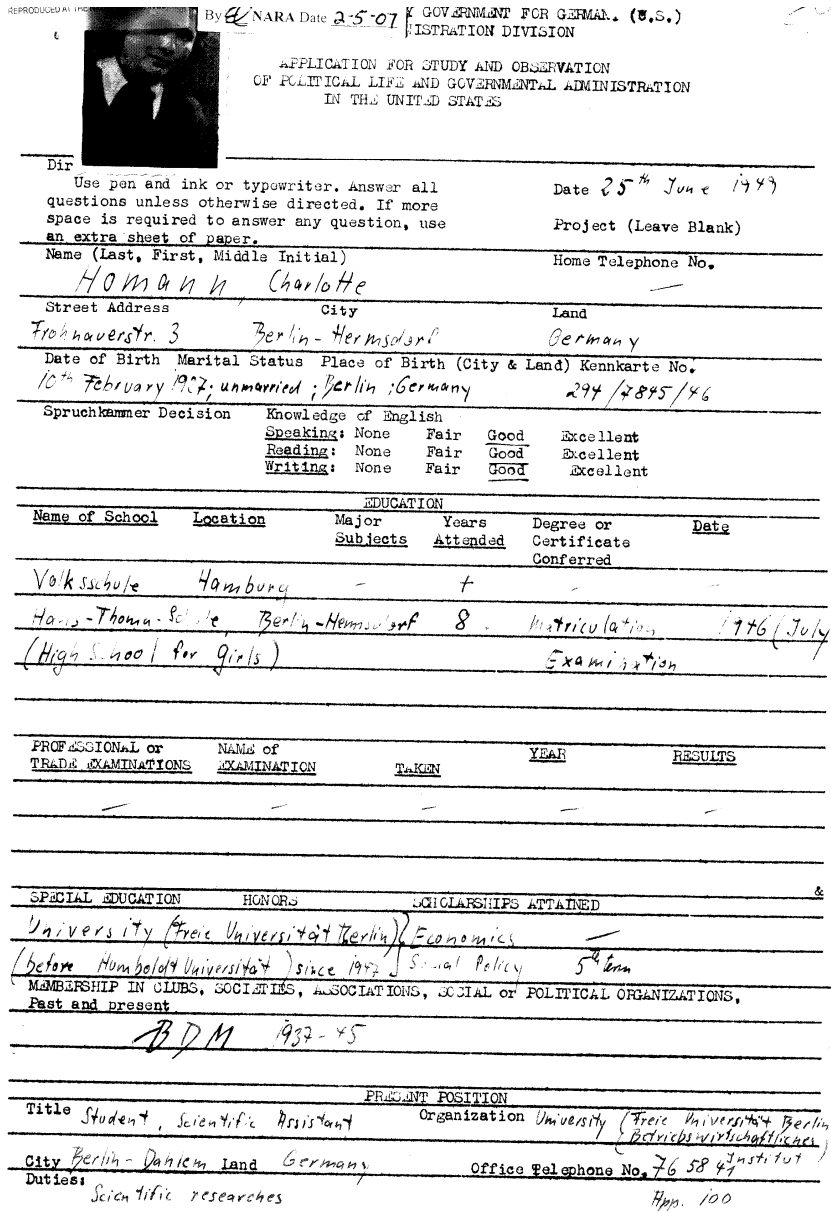 REPRODUCED AT THE
By NARA Date 2-5-07
GOVERNMENT FOR GERMAN. (U.S.)
ISTRATION DIVISION
APPLICATION FOR STUDY AND OBSERVATION
OF POLITICAL LIFE AND GOVERNMENTAL ADMINISTRATION
IN THE UNITED STATES
Dir
Use pen and ink or typewriter. Answer all
questions unless otherwise directed. If more
space is required to answer any question, use
an extra sheet of paper.
Date 25th June 1949
Project (Leave Blank)
Name (Last, First, Middle Initial) Home Telephone No.
Homann, Charlotte —
Street Address City Land
Frohnauerstr. 3 Berlin-Hermsdorf Germany
Date of Birth Marital Status Place of Birth (City & Land) Kennkarte No.
10th February 1927; unmarried; Berlin; Germany 294/7845/46
Spruchkammer Decision Knowledge of English
Speaking: None Fair Good Excellent
Reading: None Fair Good Excellent
Writing: None Fair Good Excellent
EDUCATION
Name of School Location Major Subjects Years Attended Degree or Certificate Conferred Date
Volksschule Hamburg - 4 - -
Hans-Thoma-Schule, Berlin-Hermsdorf 8 Matriculation 1946 (July
(High School for girls) Examination
PROFESSIONAL or TRADE EXAMINATIONS NAME of EXAMINATION TAKEN YEAR RESULTS
— — — — —
&
SPECIAL EDUCATION HONORS SCHOLARSHIPS ATTAINED
University (Freie Universität Berlin) Economics —
(before Humboldt Universität) since 1947 Social Policy 5th term
MEMBERSHIP IN CLUBS, SOCIETIES, ASSOCIATIONS, SOCIAL or POLITICAL ORGANIZATIONS,
Past and present
BDM 1937-45
PRESENT POSITION
Title Student, Scientific Assistant Organization University (Freie Universität Berlin
Betriebswirtschaftliches
Institut)
City Berlin-Dahlem Land Germany Office Telephone No. 76 58 41
Duties:
Scientific researches App. 100